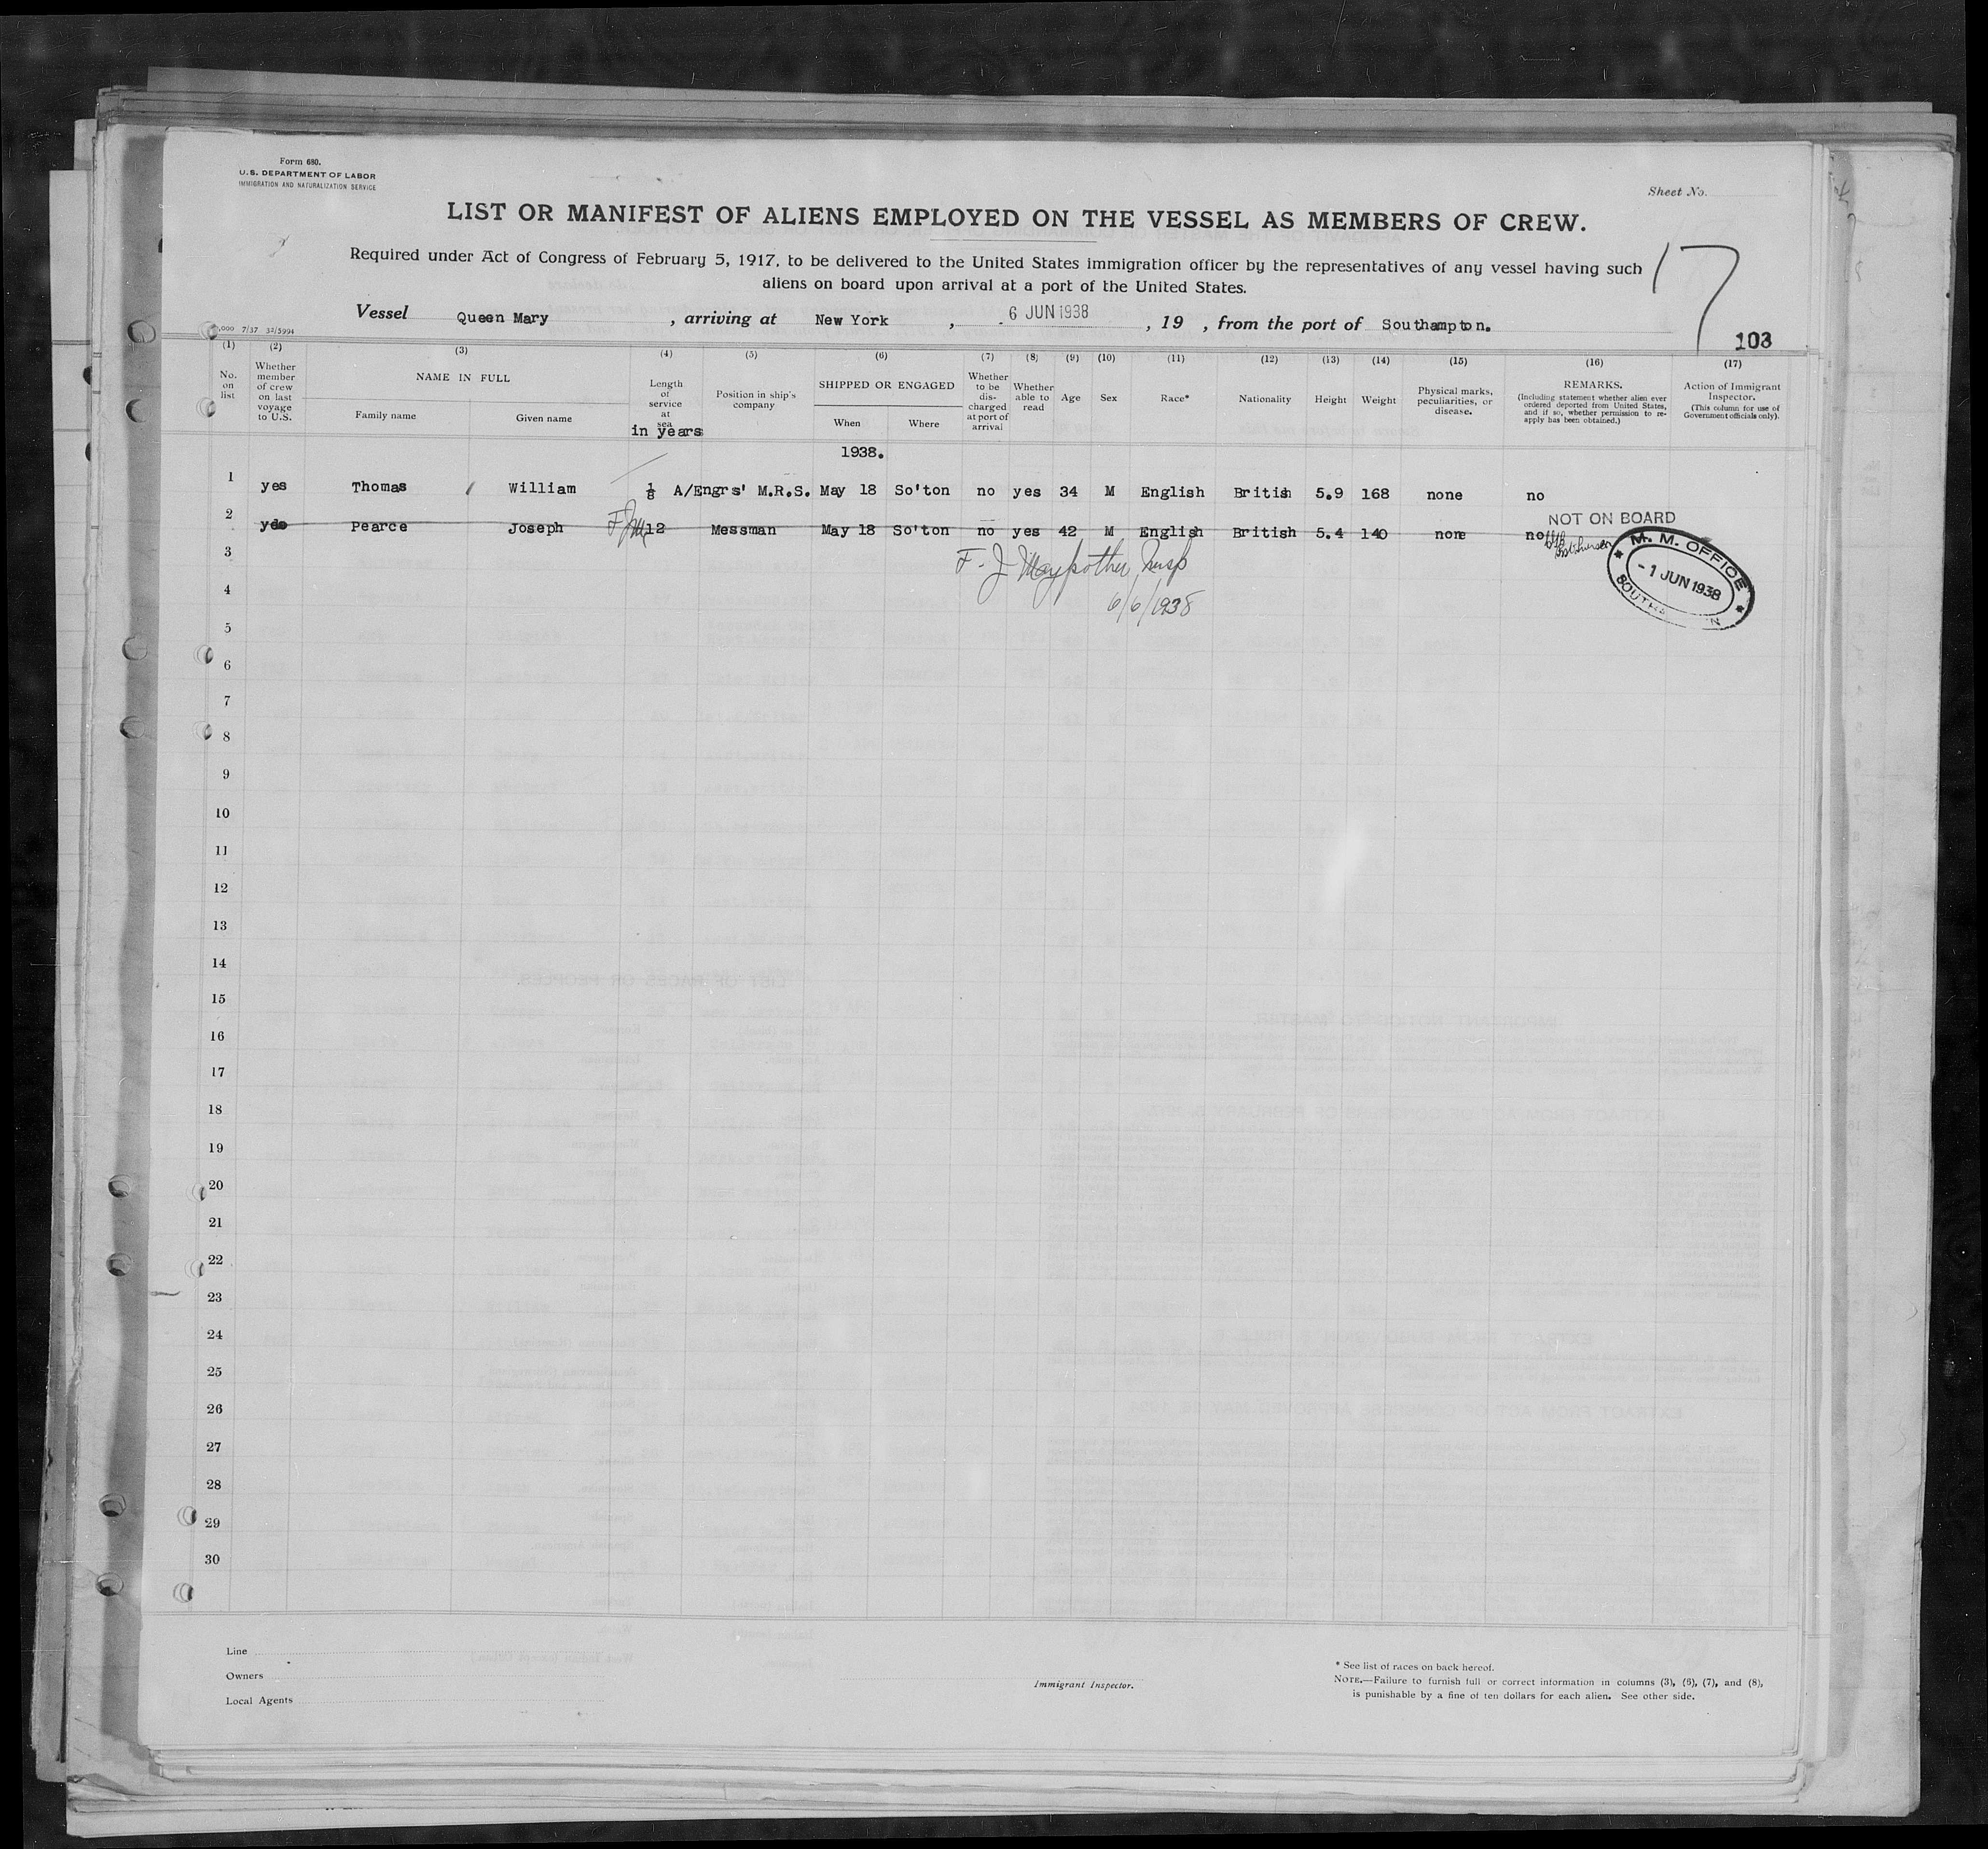 Form 680.
U.S. DEPARTMENT OF LABOR
IMMIGRATION AND NATURALIZATION SERVICE
Sheet No.
LIST OR MANIFEST OF ALIENS EMPLOYED ON THE VESSEL AS MEMBERS OF CREW.
Required under Act of Congress of February 5, 1917, to be delivered to the United States immigration officer by the representatives of any vessel having such
aliens on board upon arrival at a port of the United States.
17
Vessel Queen Mary , arriving at New York , 6 JUN 1938 , 19 , from the port of Southampton.
,000 7/37 32/5994
103
(1) (2) (3) (4) (5) (6) (7) (8) (9) (10) (11) (12) (13) (14) (15) (16) (17)
No. on list
Whether member of crew on last voyage to U.S.
NAME IN FULL
Family name
Given name
Length of service at sea
in years
Position in ship's company
SHIPPED OR ENGAGED
When
Where
Whether to be discharged at port of arrival
Whether able to read
Age
Sex
Race*
Nationality
Height
Weight
Physical marks, peculiarities, or disease.
REMARKS.
(Including statement whether alien ever ordered deported from United States, and if so, whether permission to reapply has been obtained.)
Action of Immigrant Inspector.
(This column for use of Government officials only).
1938.
1 yes Thomas William 1/8 A/Engrs' M.R.S. May 18 So'ton no yes 34 M English British 5.9 168 none no
NOT ON BOARD
2 yes Pearce Joseph FJM 12 Messman May 18 So'ton no yes 42 M English British 5.4 140 none no
M. M. OFFICE
- 1 JUN 1938
3
F. J. Maypother, Insp
4
6/6/1938
5
6
7
8
9
10
11
12
13
14
15
16
17
18
19
20
21
22
23
24
25
26
27
28
29
30
Line
Owners
Local Agents
Immigrant Inspector.
* See list of races on back hereof.
NOTE.—Failure to furnish full or correct information in columns (3), (6), (7), and (8),
is punishable by a fine of ten dollars for each alien. See other side.